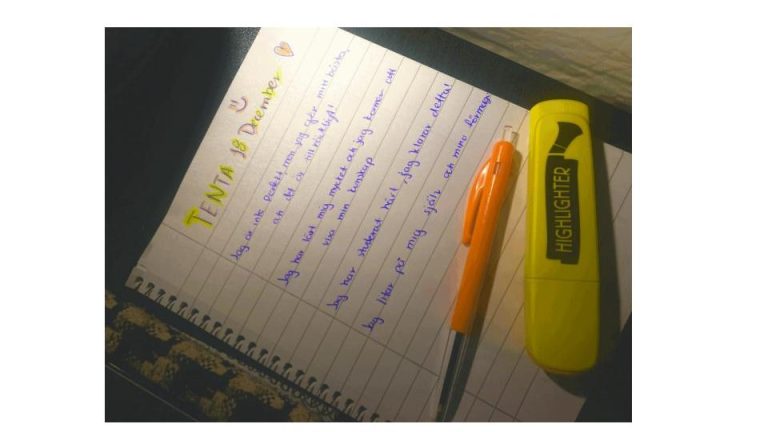 TENTA 18 December
Jag är inte perfekt men jag gör mitt bästa,
och det är tillräckligt!
Jag har lärt mig mycket och jag kommer att
visa min kunskap
Jag har studerat hårt, jag klarar detta!
Jag litar på mig själv och min förmåga
HIGHLIGHTER